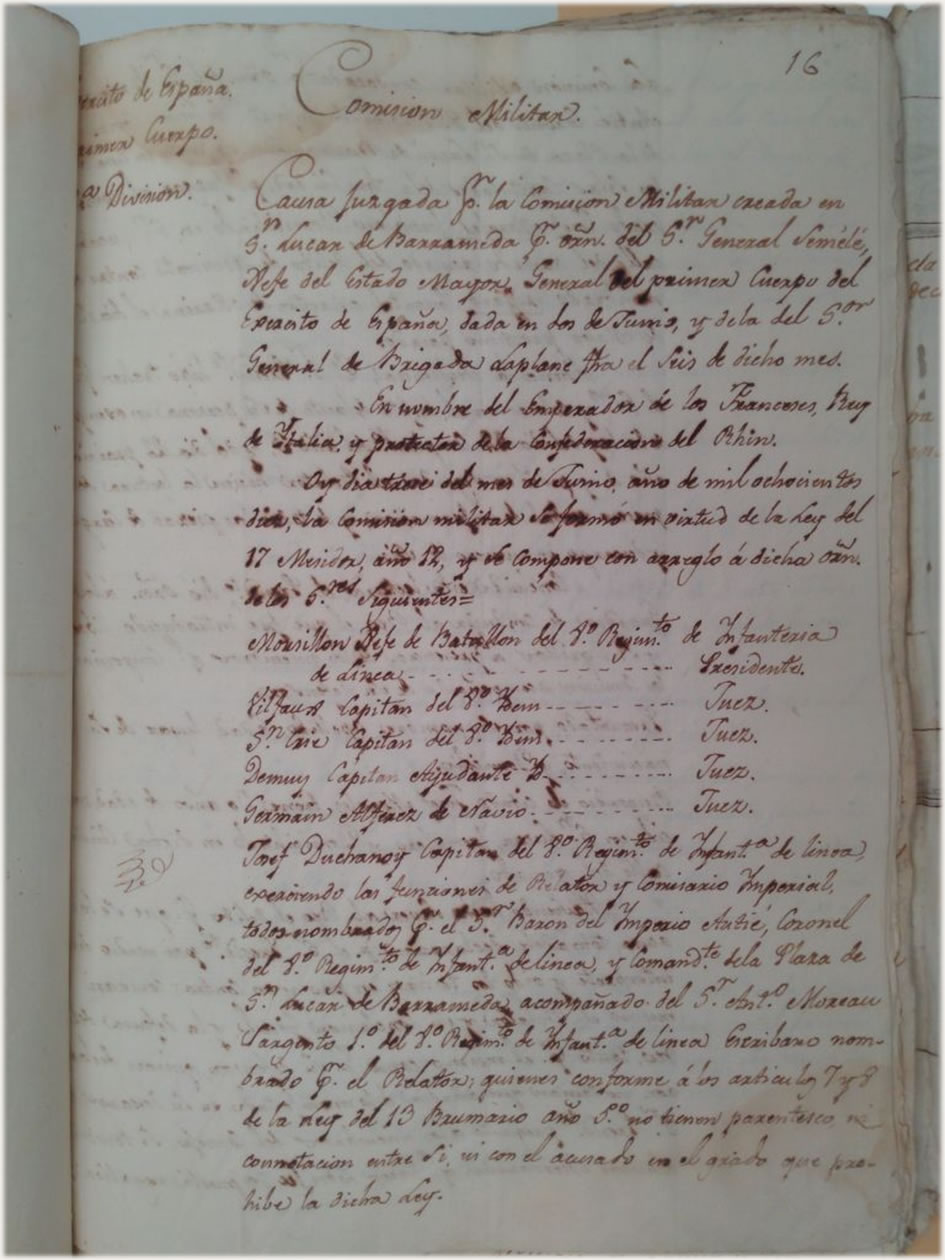 16
Comision Militar.
ercito de España.
rimer Cuerpo.
a Division.
Causa Juzgada pr. la Comision Militar creada en
Sn. Lucar de Barrameda p. orn. del Sr. General Semélé,
Xefe del Estado Mayor General del primer Cuerpo del
Exercito de España, dada en dos de Junio, y dela del Sor.
General de Brigada Laplane fha el Seis de dicho mes.
En nombre del Emperador de los Franceses, Rey
de Italia, y protector de la Confederacion del Rhin.
Oy dia trece del mes de Junio, año de mil ochocientos
diez, la Comision militar se formó en virtud de la Ley del
17 Mesidor, año 12, y se compone con arreglo á dicha orn.
de los Sres. Siguientes=
Morsillon Xefe de Batallon del 8º. Regimto. de Infanteria
de Linea - - - - - - - - - - Presidente.
Vilfaur Capitan del 8º. Idem - - - - - - Juez.
Sn. Cric Capitan del 8º. Idem - - - - - - Juez.
Demuy Capitan Ayudante Id. - - - - - - Juez.
Germain Alferez de Navio. - - - - - - Juez.
Josef Duchanoy Capitan del 8º. Regimto. de Infanta. de linea,
exerciendo las funciones de Relator y Comisario Imperial,
todos nombrados p. el Sr. Baron del Imperio Autié, Coronel
del 8º. Regimto. de Infanta. de linea, y Comandte. dela Plaza de
Sn. Lucar de Barrameda, acompañado del Sr. Anto. Moreau
Sargento 1º. del 8º. Regimto. de Infanta. de linea Escribano nom-
brado p. el Relator; quienes conforme á los articulos 7 y 8
de la Ley del 13 Brumario año 5º. no tienen parentesco, ni
connotacion entre si, ni con el acusado en el grado que pro-
hibe la dicha Ley.